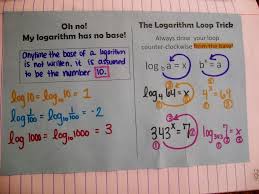 Oh no!
My logarithm has no base!
Anytime the base of a logarithm
is not written, it is assumed
to be the number 10.
log10 = log₁₀10 = 1
log 1/100 = log₁₀ 1/100 = -2
log 1000 = log₁₀1000 = 3
The Logarithm Loop Trick
Always draw your loop
counter-clockwise from the base!
log_b a = x
bˣ = a
log₄64 = x
4ˣ = 64
343ˣ = 7
log₃₄₃7 = x